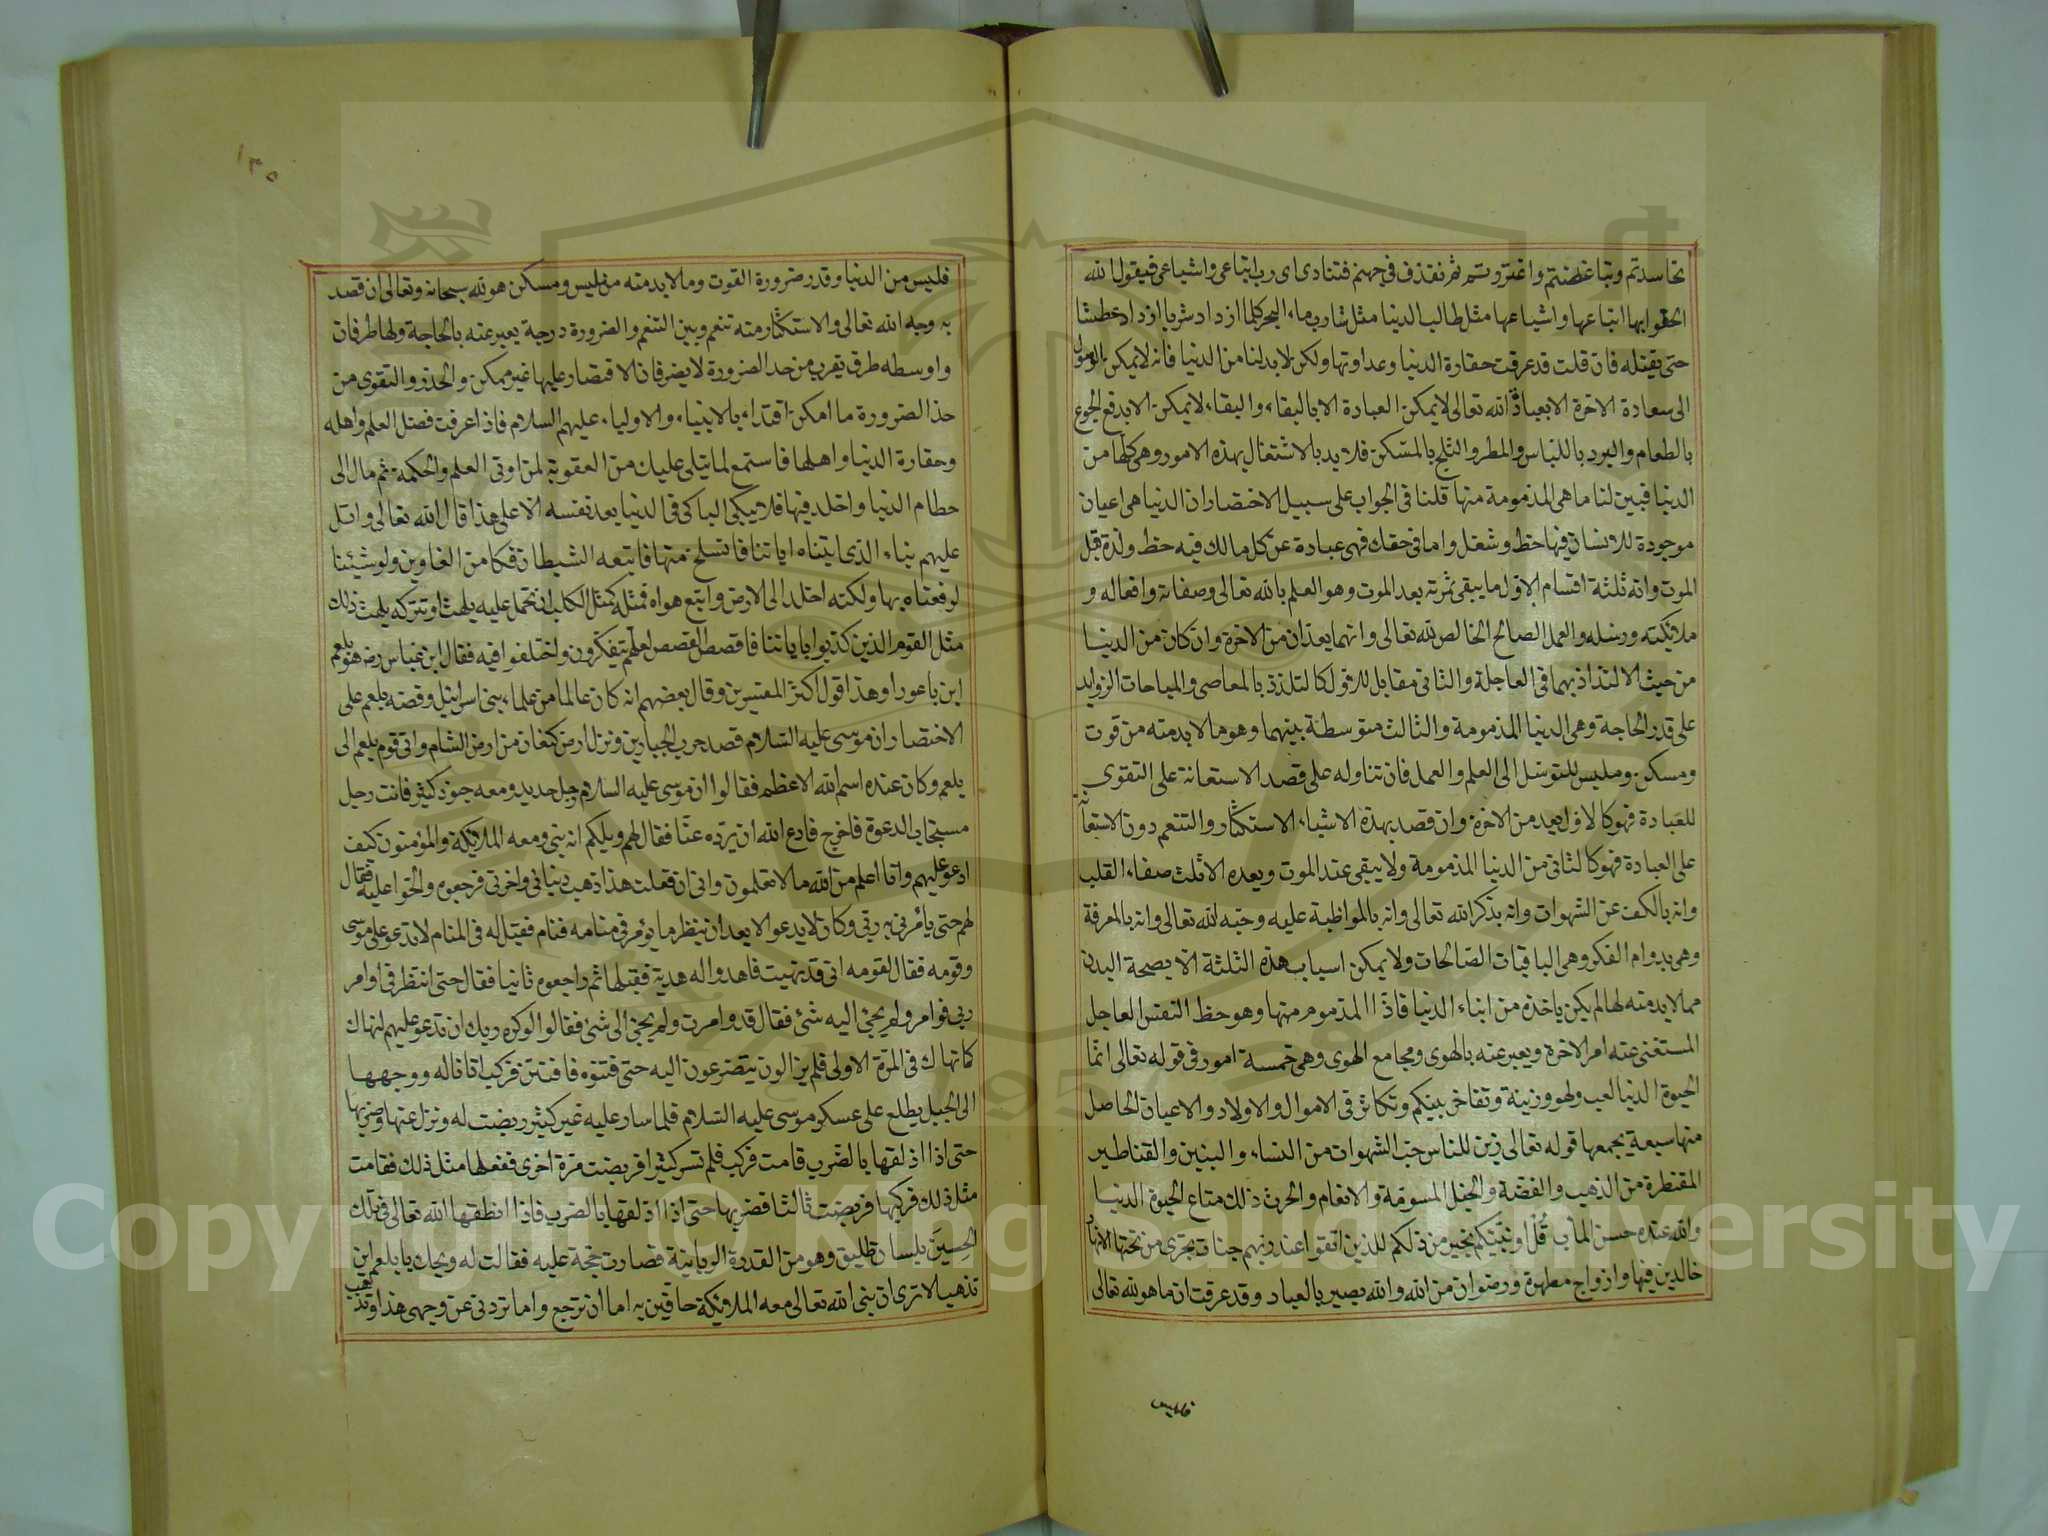 تحاسدتم وتباغضتم واغتررتم ثم نقذف في جهنم فتنادى اى رب اتباعى واشياعى فيقول الله
الحقوا بها اتباعها واشياعها مثل طالب الدنيا مثل شارب ماء البحر كلما ازداد شربا ازداد عطشا
حتى يقتله فان قلت قد عرفت حقارة الدنيا وعداوتها ولكن لابد لنا من الدنيا فانه لا يمكن الوصول
الى سعادة الاخرة الا بعبادة الله تعالى لا يمكن العبادة الا بالبقاء والبقاء لا يمكن الا بدفع الجوع
بالطعام والبرد باللباس والمطر والثلج بالمسكن فلا بد بالاشتغال بهذه الامور وهى كلها من
الدنيا فبين لنا ما هى المذمومة منها قلنا فى الجواب على سبيل الاختصار ان الدنيا هى اعيان
موجودة للانسان فيها حظ وشغل واما فى حقك فهى عبارة عن كل مالك فيه حظ ولذة قبل
الموت وانه ثلثة اقسام الاول ما يبقى ثمرته بعد الموت وهو العلم بالله تعالى وصفاته وافعاله و
ملائكته ورسله والعمل الصالح الخالص لله تعالى وانهما يعدان من الاخرة وان كان من الدنيا
من حيث الالتذاذ بهما فى العاجلة والثانى مقابل للاول كالتلذذ بالمعاصى والمباحات الزوايد
على قدر الحاجة وهى الدنيا المذمومة والثالث متوسطة بينهما وهو ما لابد منه من قوت
ومسكن وملبس للتوسل الى العلم والعمل فان تناوله على قصد الاستعانة على التقوى
للعبادة فهو كالاول يعد من الاخرة وان قصد بهذه الاشياء الاستكثار والتنعم دون الاستعانة
على العبادة فهو كالثانى من الدنيا المذمومة ولا يبقى عند الموت وبعده الا ثلث صفاء القلب
وانه بالكف عن الشهوات وانه بذكر الله تعالى وانه بالمواظبة عليه وحبه لله تعالى وانه بالمعرفة
وهى بدوام الفكر وهى الباقيات الصالحات ولا يمكن اسباب هذه الثلثة الا بصحة البدن
مما لابد منه لها لم يكن ياخذه من ابناء الدنيا فاذا المذموم منها وهو حظ النفس العاجل
المستغنى عنه امر الاخرة ويعبر عنه بالهوى ومجامع الهوى وهى خمسة امور فى قوله تعالى انما
الحيوة الدنيا لعب ولهو وزينة وتفاخر بينكم وتكاثر فى الاموال والاولاد والاعيان الحاصل
منها سبعة يجمعها قوله تعالى زين للناس حب الشهوات من النساء والبنين والقناطير
المقنطرة من الذهب والفضة والخيل المسومة والانعام والحرث ذلك متاع الحيوة الدنيا
والله عنده حسن المآب قل اونبئكم بخير من ذلكم للذين اتقوا عند ربهم جنات تجرى من تحتها الانهار
خالدين فيها وازواج مطهرة ورضوان من الله والله بصير بالعباد وقد عرفت ان ما هو لله تعالى
فليس
١٣٥
فليس من الدنيا وقدر ضرورة القوت وما لابد منه من ملبس ومسكن هو لله سبحانه وتعالى ان قصد
به وجه الله تعالى والاستكثار منه تنعم وبين التنعم والضرورة درجة يعبر عنه بالحاجة ولها طرفان
واوسطه طرق يقرب من حد الضرورة لا يضر فان الاقتصار عليها غير ممكن والحذر والتقوى من
حذ الضرورة ما امكن اقتداء بالانبياء والاولياء عليهم السلام فاذا عرفت فضل العلم واهله
وحقارة الدنيا واهلها فاستمع لما يتلى عليك من العقوبة لمن اوتى العلم والحكمة ثم مال الى
حطام الدنيا واخلد فيها فلا يبكى الباكى فى الدنيا بعد نفسه الا على هذا قال الله تعالى واتل
عليهم نباء الذى اتيناه اياتنا فانسلخ منها فاتبعه الشيطان فكا من الغاوين ولو شيئنا
لرفعناه بها ولكنه اخلد الى الارض واتبع هواه فمثله كمثل الكلب ان تحمل عليه يلهث او تتركه يلهث ذلك
مثل القوم الذين كذبوا باياتنا فاقصص القصص لعلهم يتفكرون واختلفوا فيه فقال ابن عباس رضه هو بلعم
ابن باعورا وهذا قول اكثر المفسرين وقال بعضهم انه كان عالما من علماء بنى اسرايئل وقصة بلعم على
الاختصار ان موسى عليه السلام قصد حرب الجبارين ونزل ارض كنعان من ارض الشام واتى قوم بلعم الى
بلعم وكان عنده اسم الله الاعظم فقالوا ان موسى عليه السلام رجل حديد ومعه جنود كثير فانت رجل
مستجاب الدعوة فاخرج فادع الله ان يرده عنا فقال لهم ويلكم انه نبى ومعه الملائكة والمؤمنون كيف
ادعو عليهم وانا اعلم من الله ما لا تعلمون وانى ان فعلت هذا ذهب دنيائى واخرتى فرجعوه والحوا عليه فقال
لهم حتى يأمرنى به ربى وكان لا يدعو الا بعد ان ينظر ما يؤمر فى منامه فنام فقيل له فى المنام لا تدعو على موسى
وقومه فقال لقومه انى قد نهيت فاهدوا له هدية فقبلها ثم راجعوه ثانيا فقال حتى انتظر فى اوامر
ربى فوامر ولم يجئ اليه شئ فقال قد وامرت ولم يجئ الى شئ فقالوا لو كره ربك ان تدعو عليهم لنهاك
كما نهاك فى المرة الاولى فلم يزالون يتضرعون اليه حتى فتنوه فافتتن فركب اتانا له ووجهها
الى الجبل يطلع على عسكر موسى عليه السلام فلما سار عليه غير كثير ربضت له ونزل عنها وضربها
حتى اذا اذلقها بالضرب قامت فركب فلم تسر كثيرا فربضت مرة اخرى ففعلها مثل ذلك فقامت
مثل ذلك فركبها فربضت ثالثا فضربها حتى اذا اذلقها بالضرب فاذا انطقها الله تعالى فى تلك
الحسين بلسان طليق وهو من القدرة الربانية فصارت حجة عليه فقالت له ويحك يا بلعم اين
تذهب الا ترى ان بنى الله تعالى معه الملائكة حاقين به اما ان ترجع واما تردنى عن وجهى هذا وتذهب
Copyright © King Saud University